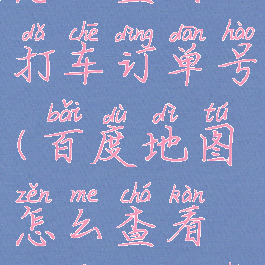 dǎ chē dìng dān hào
打车订单号
bǎi dù dì tú
(百度地图
zěn me chá kàn
怎么查看